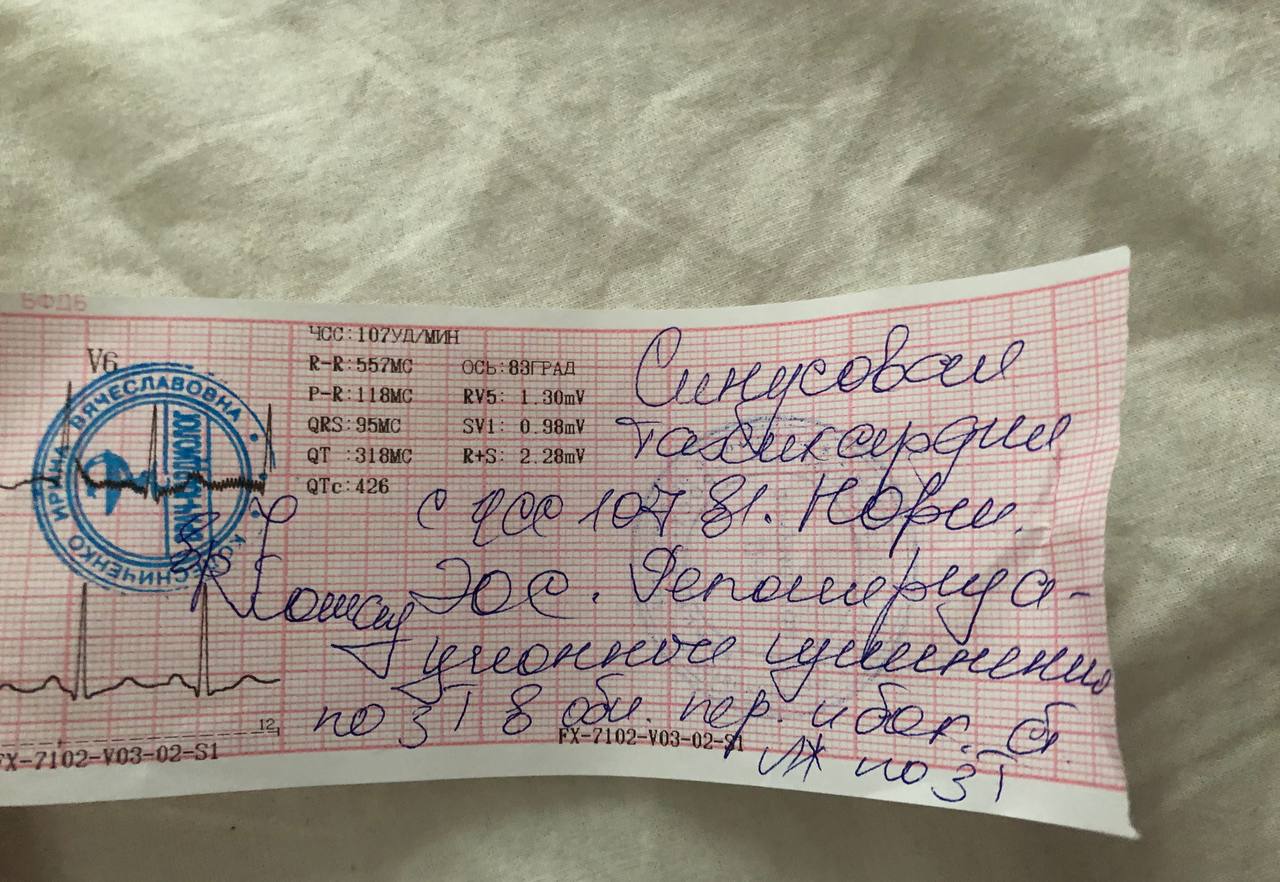 БФДБ
V6
ЧСС:107УД/МИН
R-R:557МС ОСЬ:83ГРАД
P-R:118МС RV5: 1.30mV
QRS:95МС SV1: 0.98mV
QT :318МС R+S: 2.28mV
QTc:426
ИРИНА ВЯЧЕСЛАВОВНА
Синусовая
тахикардия
с ЧСС 107 в1. Норм.
ЭОС.
по ЗТ в обл. пер. и бок. ст.
ЛЖ по ЗТ
12
FX-7102-V03-02-S1
FX-7102-V03-02-S1